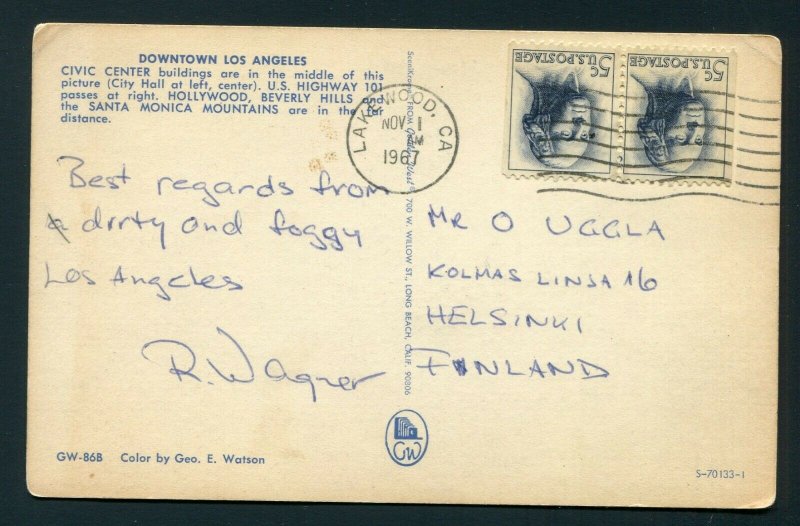 DOWNTOWN LOS ANGELES
CIVIC CENTER buildings are in the middle of this
picture (City Hall at left, center). U.S. HIGHWAY 101
passes at right. HOLLYWOOD, BEVERLY HILLS and
the SANTA MONICA MOUNTAINS are in the far
distance.
Best regards from
a dirty and foggy
Los Angeles
R. Wagner
GW-86B Color by Geo. E. Watson
FROM Golden West® 700 W. WILLOW ST., LONG BEACH, CALIF. 90806
GW
LAKEWOOD, CA
NOV 1
AM
1967
5c U.S. POSTAGE
5c U.S. POSTAGE
MR O UGGLA
KOLMAS LINJA 16
HELSINKI
FINLAND
S-70133-1